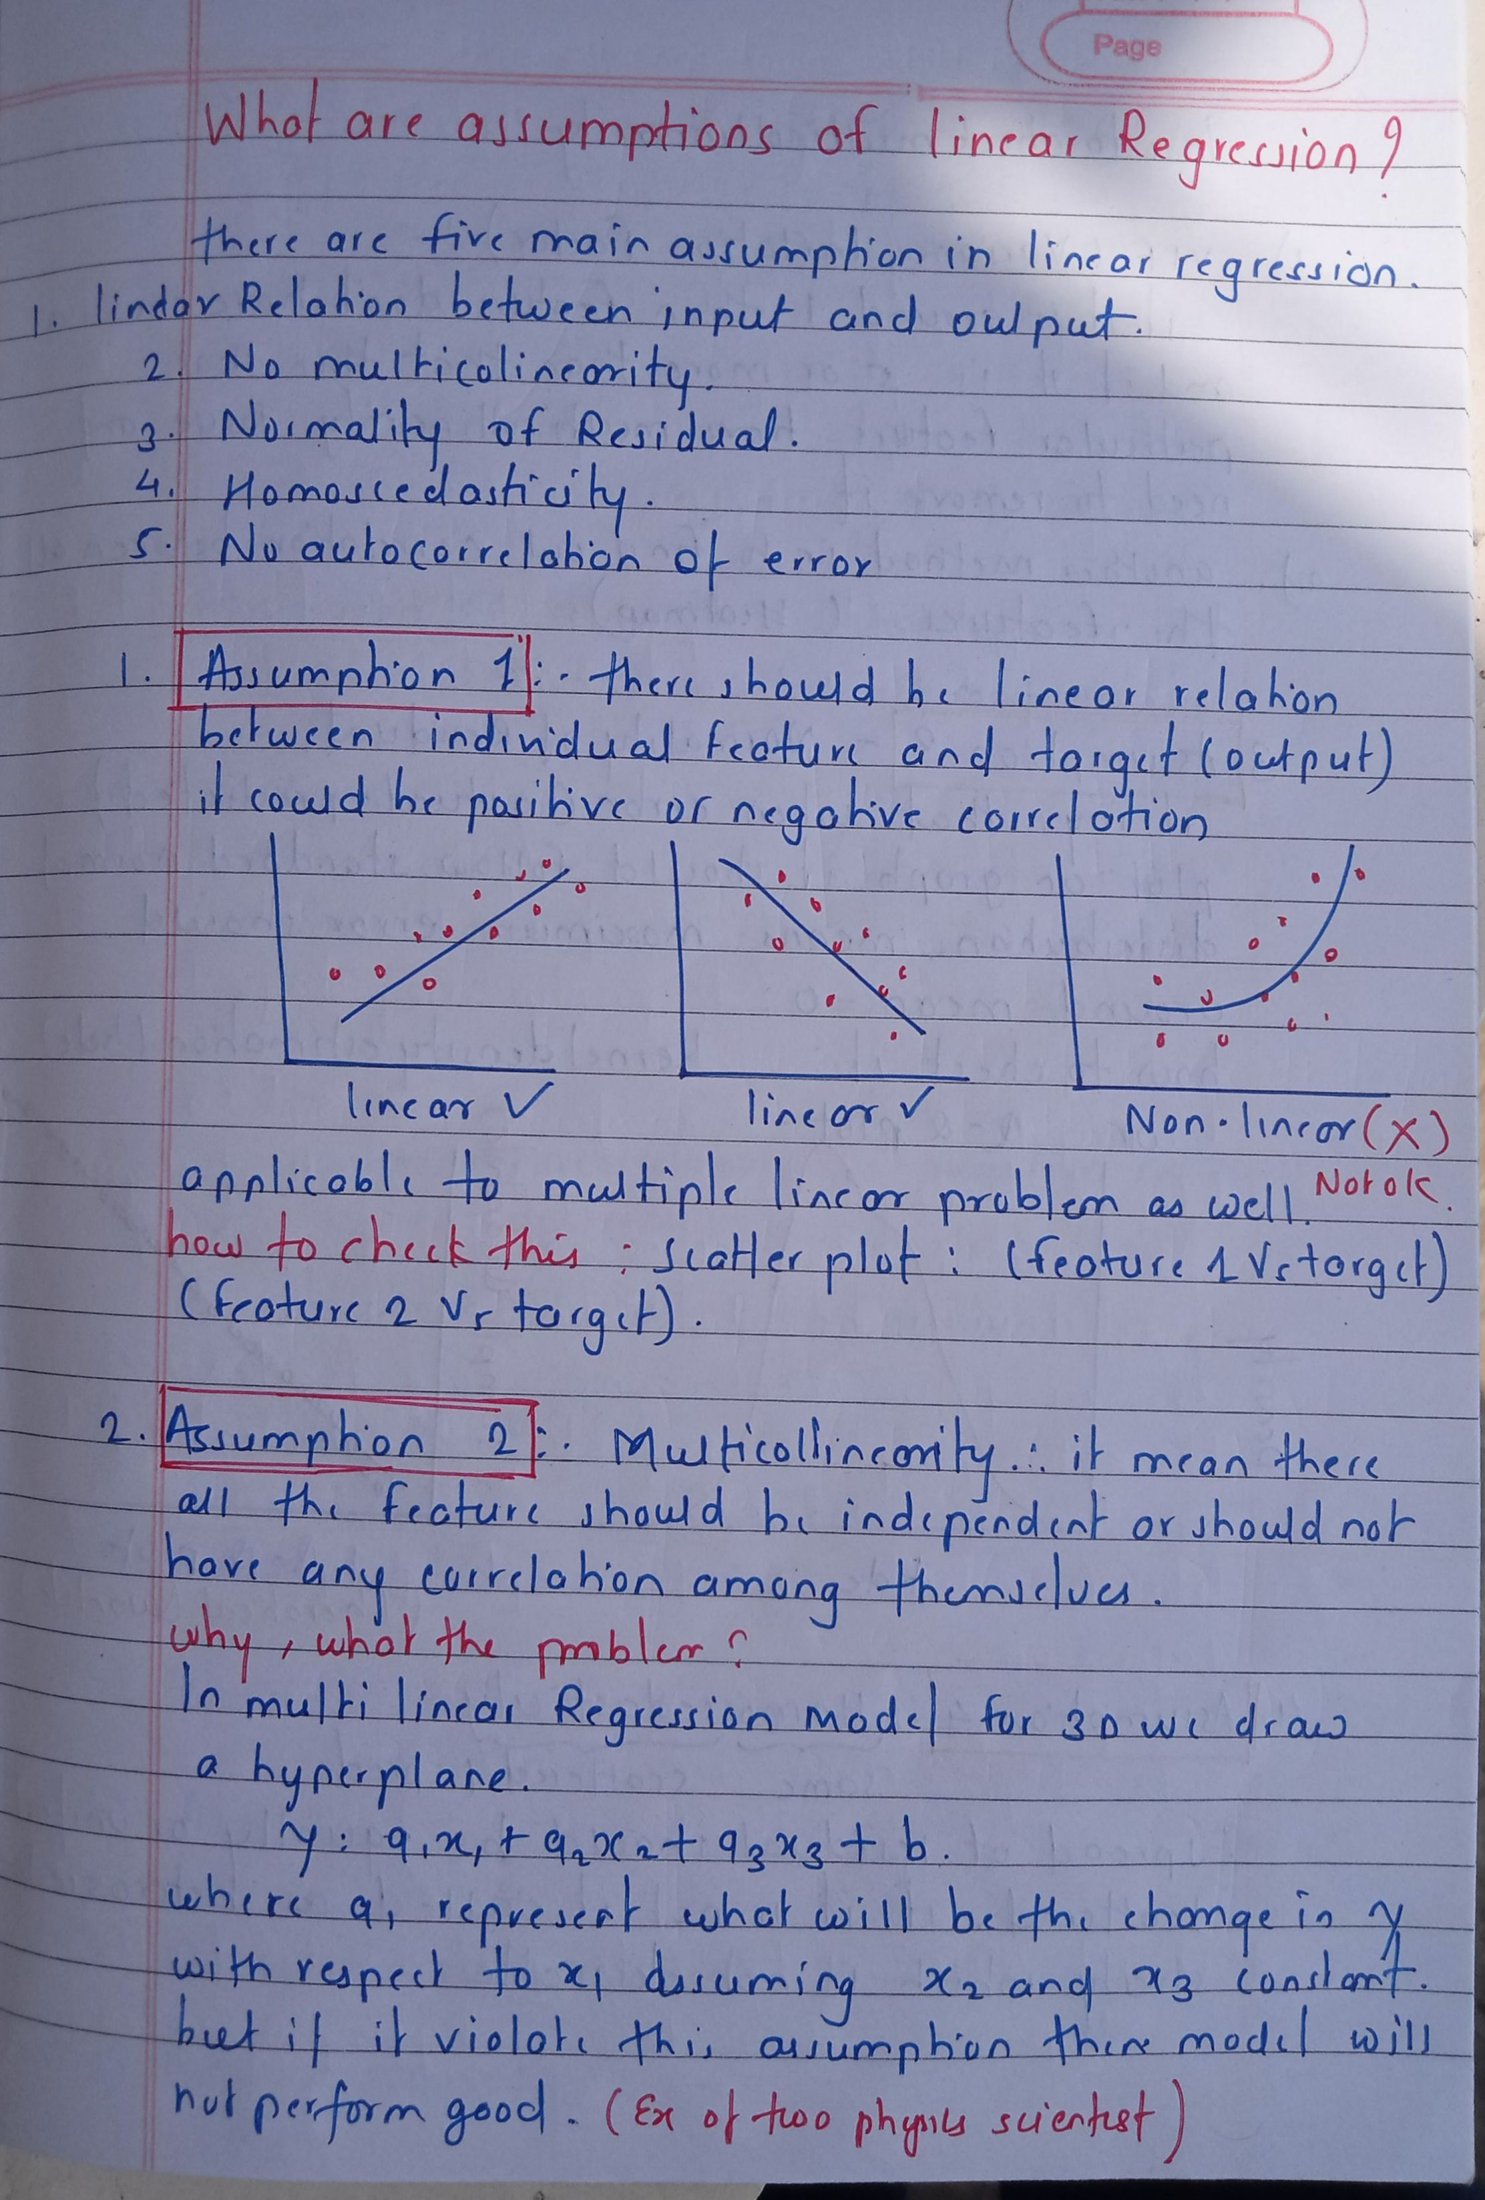 Page
What are assumptions of linear Regression?
there are five main assumption in linear regression.
1. linear Relation between input and output.
2. No multicolinearity.
3. Normality of Residual.
4. Homoscedasticity.
5. No autocorrelation of error
1. Assumption 1 :- there should be linear relation
between individual feature and target (output)
it could be positive or negative correlation
linear ✓ linear ✓ Non-linear (X)
applicable to multiple linear problem as well. Not ok.
how to check this : scatter plot : (feature 1 Vs target)
(feature 2 Vs target).
2. Assumption 2 :- Multicollinearity : it mean there
all the feature should be independent or should not
have any correlation among themselves.
why, what the problem?
In multi linear Regression model for 3D we draw
a hyperplane.
y = a₁x₁ + a₂x₂ + a₃x₃ + b.
where a₁ represent what will be the change in y
with respect to x₁ assuming x₂ and x₃ constant.
but if it violate this assumption there model will
not perform good. (Ex of two physics scientist)